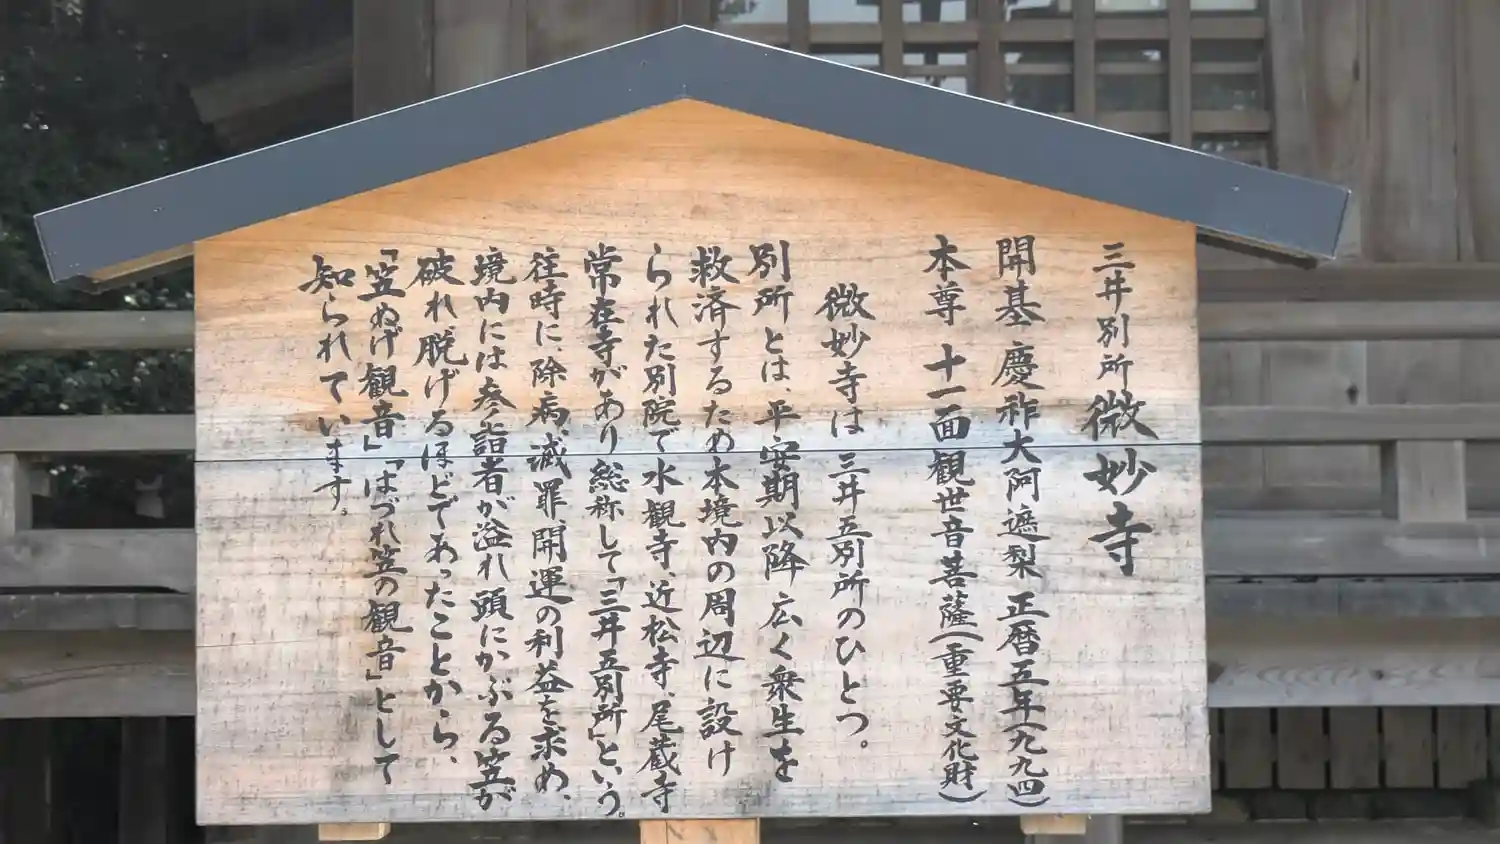 三井別所 微妙寺
開基 慶祚大阿遮梨 正暦五年(九九四)
本尊 十一面観世音菩薩(重要文化財)
微妙寺は三井五別所のひとつ。
別所とは、平安期以降広く衆生を
救済するため本境内の周辺に設け
られた別院で水観寺、近松寺、尾蔵寺
常在寺があり総称して「三井五別所」という。
往時に、除病、滅罪、開運の利益を求め、
境内には参詣者が溢れ頭にかぶる笠が
破れ脱げるほどであったことから、
「笠ぬげ観音」「はづれ笠の観音」として
知られています。